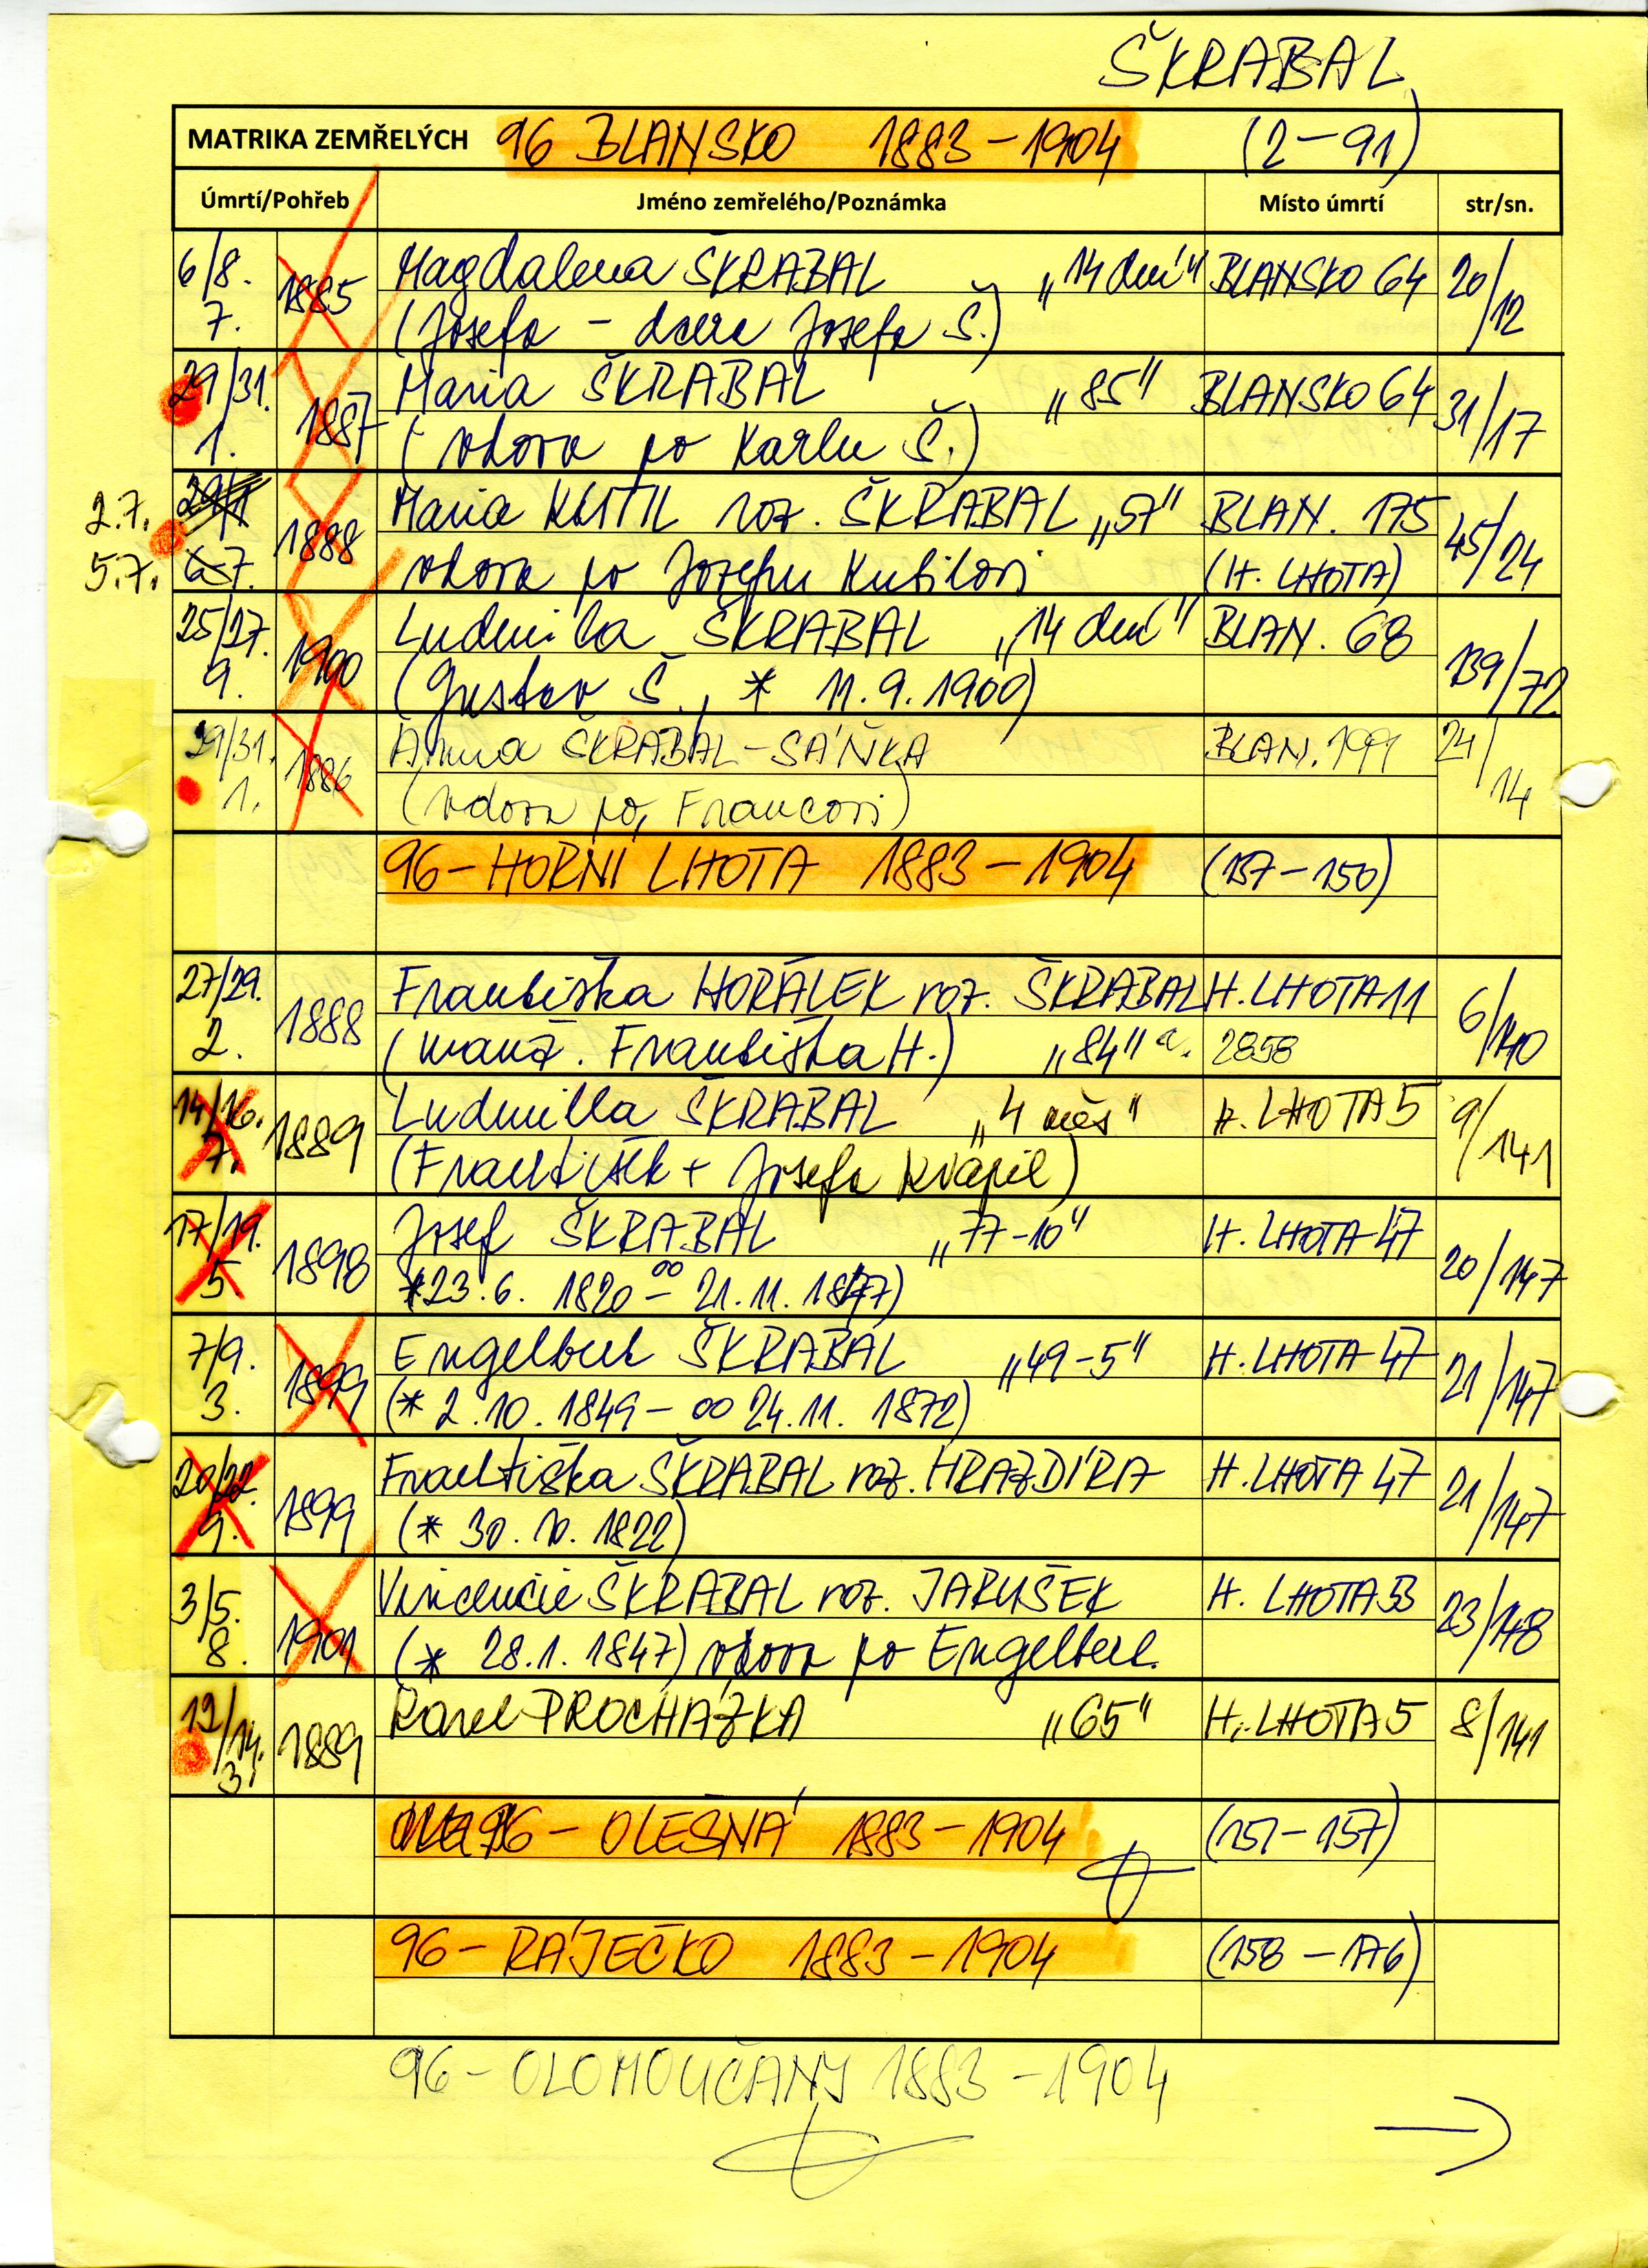 ŠKRABAL
MATRIKA ZEMŘELÝCH 96 BLANSKO 1883-1904 (2-91)
Úmrtí/Pohřeb Jméno zemřelého/Poznámka Místo úmrtí str/sn.
6/8. 1885 Magdalena ŠKRABAL „14 dní" BLANSKO 64 20/12
7. (Josefa - dcera Josefa Š.)
29/31. 1887 Maria ŠKRABAL „85" BLANSKO 64 31/17
1. (vdova po Karlu Š.)
2.7. 1888 Maria KUTIL roz. ŠKRABAL „57" BLAN. 175 45/24
5.7. 7. vdova po Josefu Kutilovi (H. LHOTA)
25/27. 1900 Ludmila ŠKRABAL „14 dní" BLAN. 68 139/72
9. (Gustav Š., * 11.9.1900)
29/31. 1886 Anna ŠKRABAL-SÁŇKA BLAN. 24/14
1. (vdova po Francovi)
96-HORNÍ LHOTA 1883-1904 (137-150)
27/29. 1888 Františka HORÁLEK roz. ŠKRABAL H. LHOTA 11 6/140
2. (manž. Františka H.) „84" 2858
14/16. 1889 Ludmilla ŠKRABAL „4 měs" H. LHOTA 5 9/141
7. (František + Josefa Kvapil)
17/19. 1898 Josef ŠKRABAL „77-10" H. LHOTA 47 20/147
5. *23.6. 1820 - oo 21.11. 1847)
7/9. 1899 Engelbert ŠKRABAL „49-5" H. LHOTA 47 21/147
3. (* 2.10.1849 - oo 24.11. 1872)
20/22. 1899 Františka ŠKRABAL roz. HRAZDÍRA H. LHOTA 47 21/147
9. (* 30.10.1822)
3/5. 1901 Vincencie ŠKRABAL roz. JARUŠEK H. LHOTA 53 23/148
8. (* 28.1.1847) vdova po Engelbert.
12/14. 1889 Karel PROCHÁZKA „65" H. LHOTA 5 8/141
3.
96- OLEŠNÁ 1883-1904 (151-157)
96- RÁJEČKO 1883-1904 (158-176)
96-OLOMOUČANY 1883-1904